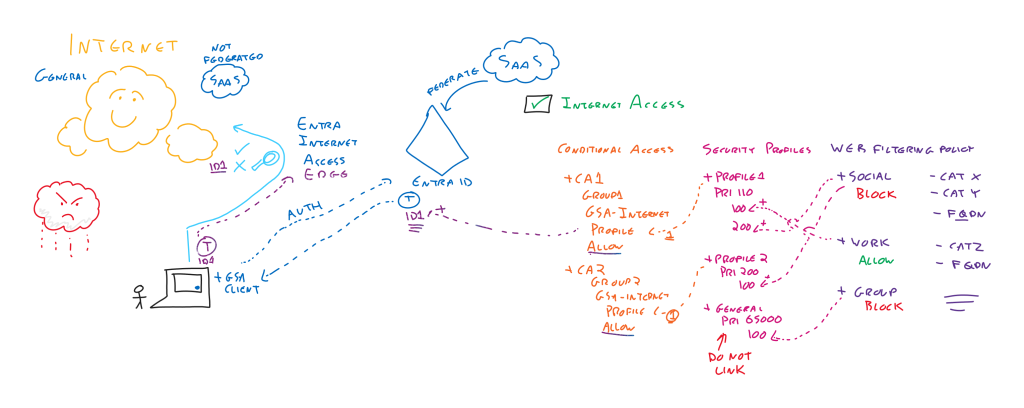 INTERNET
GENERAL
NOT
FEDERATED
SAAS
ENTRA
INTERNET
ACCESS
EDGE
ID1
T
ID1
+ GSA
CLIENT
AUTH
FEDERATE
SAAS
ENTRA ID
T
ID1
INTERNET ACCESS
CONDITIONAL ACCESS
+ CA1
GROUP1
GSA-INTERNET
PROFILE
1
ALLOW
+ CA2
GROUP2
GSA-INTERNET
PROFILE
1
ALLOW
SECURITY PROFILES
+ PROFILE 1
PRI 110
100
200
+ PROFILE 2
PRI 200
100
+ GENERAL
PRI 65000
100
DO NOT
LINK
WEB FILTERING POLICY
+ SOCIAL
BLOCK
- CAT X
- CAT Y
- FQDN
+ WORK
ALLOW
- CATZ
- FQDN
+ GROUP
BLOCK